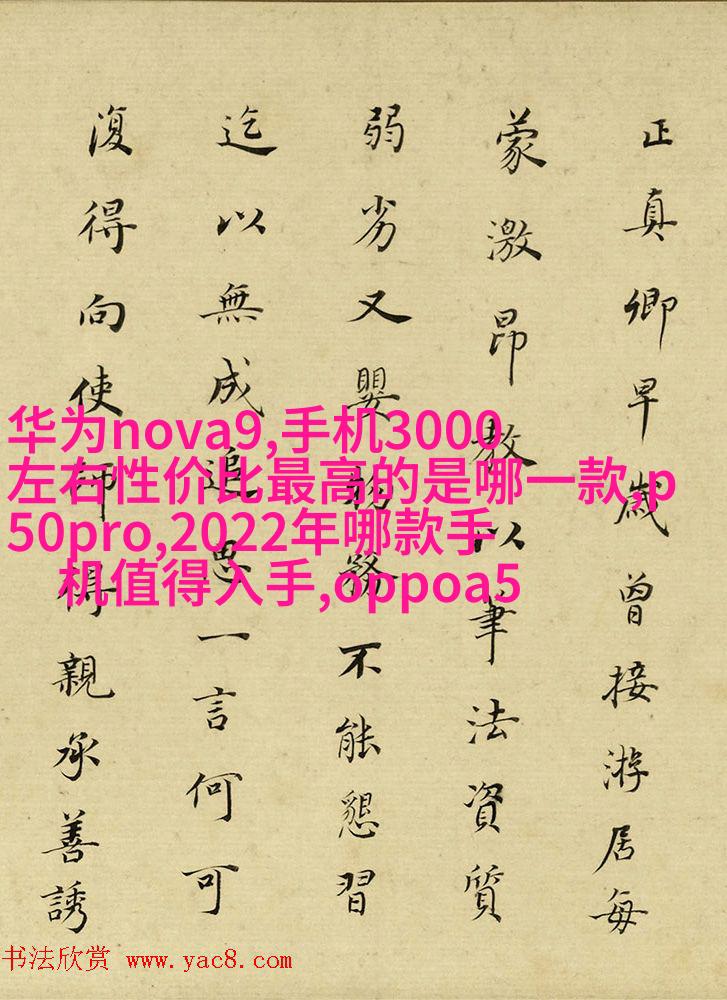 正真卿早歲曾接游居每
蒙激昂教以筆法資質
弱劣又嬰物務不能懇習
迄以無成追思一言何可
復得向使師得親承善誘
华为nova9,手机3000
左右性价比最高的是哪一款,p
50pro,2022年哪款手
机值得入手,oppoa5
书法欣赏 www.yac8.com